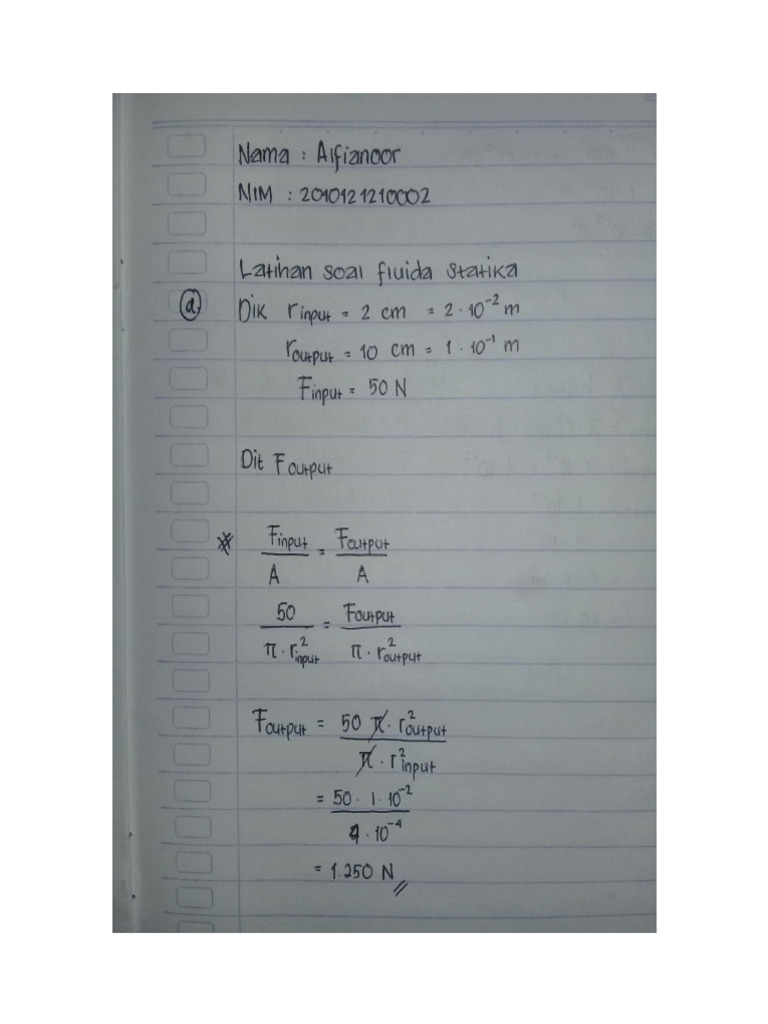 Nama : Alfianoor
NIM : 2010121210002
Latihan soal fluida statika
a Dik r input = 2 cm = 2 · 10⁻² m
r output = 10 cm = 1 · 10⁻¹ m
F input = 50 N
Dit F output
* F input / A = F output / A
50 / π · r²input = F output / π · r²output
F output = 50 π · r²output / π · r²input
= 50 · 1 · 10⁻² / 4 · 10⁻⁴
= 1.250 N //